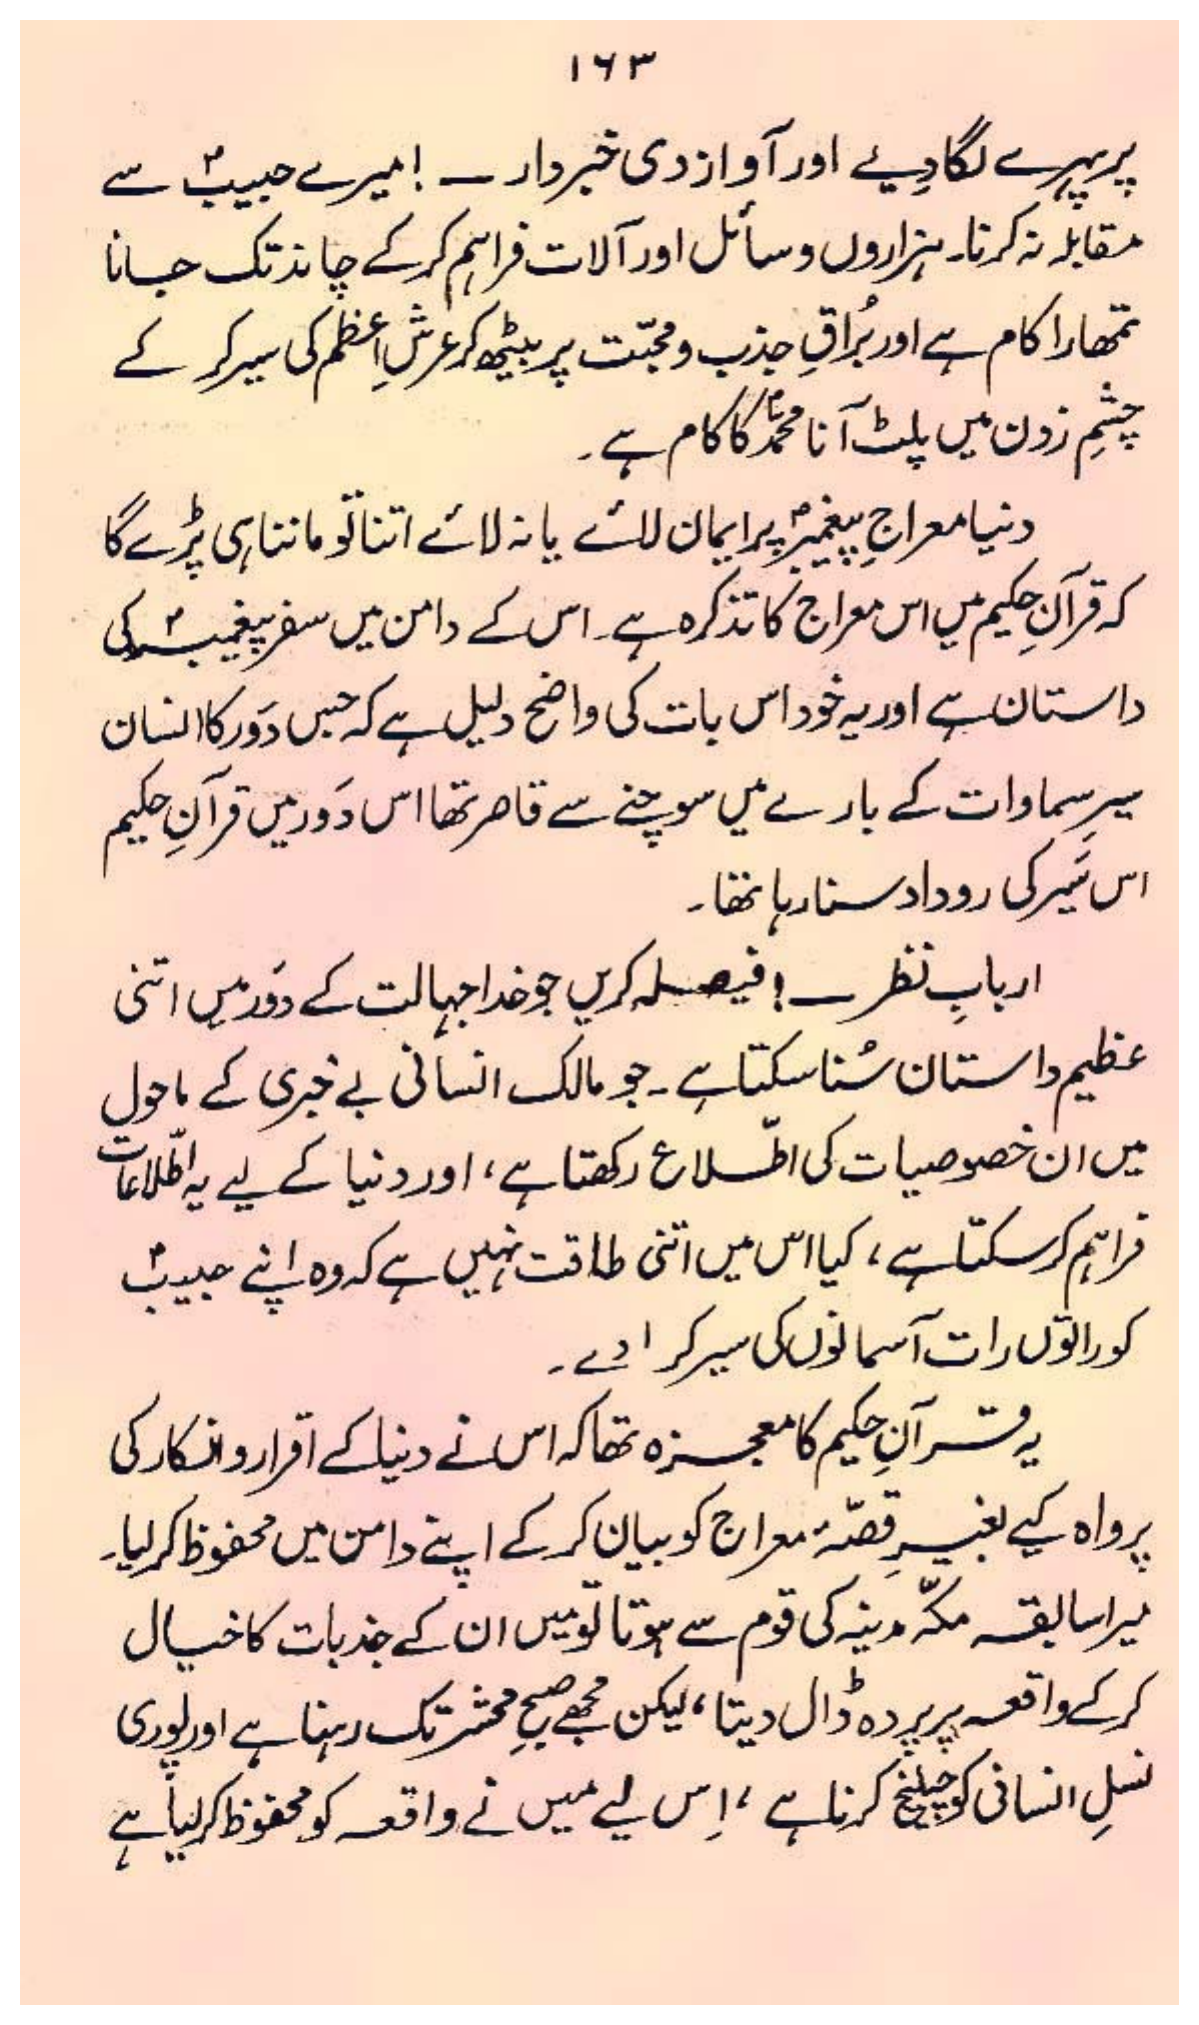 ۱۶۳
پر پہرے لگا دِیے اور آواز دی خبردار ــ ! میرے حبیبؐ سے
مقابلہ نہ کرنا۔ ہزاروں وسائل اور آلات فراہم کر کے چاند تک جانا
تمھارا کام ہے اور بُراقِ جذب و محبّت پر بیٹھ کر عرشِ اعظم کی سیر کر کے
چشمِ زدن میں پلٹ آنا محمدؐ کا کام ہے۔
دنیا معراجِ پیغمبرؐ پر ایمان لائے یا نہ لائے اتنا تو ماننا ہی پڑے گا
کہ قرآنِ حکیم میں اس معراج کا تذکرہ ہے۔ اس کے دامن میں سفر پیغمبرؐ کی
داستان ہے اور یہ خود اس بات کی واضح دلیل ہے کہ جس دَور کا انسان
سیرِ سماوات کے بارے میں سوچنے سے قاصر تھا اس دَور میں قرآنِ حکیم
اس سَیر کی روداد سنا رہا تھا۔
اربابِ نظر ــ ! فیصلہ کریں جو خدا جہالت کے دَور میں اتنی
عظیم داستان سُنا سکتا ہے۔ جو مالک انسانی بے خبری کے ماحول
میں ان خصوصیات کی اطّلاع رکھتا ہے، اور دنیا کے لیے یہ اطّلاعات
فراہم کر سکتا ہے، کیا اس میں اتنی طاقت نہیں ہے کہ وہ اپنے حبیبؐ
کو راتوں رات آسمانوں کی سیر کرا دے۔
یہ قرآنِ حکیم کا معجزہ تھا کہ اس نے دنیا کے اقرار و انکار کی
پرواہ کیے بغیر قصّۂ معراج کو بیان کر کے اپنے دامن میں محفوظ کر لیا۔
میرا سابقہ مکّہ مدینہ کی قوم سے ہوتا تو میں ان کے جذبات کا خیال
کر کے واقعہ پر پردہ ڈال دیتا، لیکن مجھے صبحِ محشر تک رہنا ہے اور پوری
نسلِ انسانی کو چیلنج کرنا ہے، اِس لیے میں نے واقعہ کو محفوظ کر لیا ہے